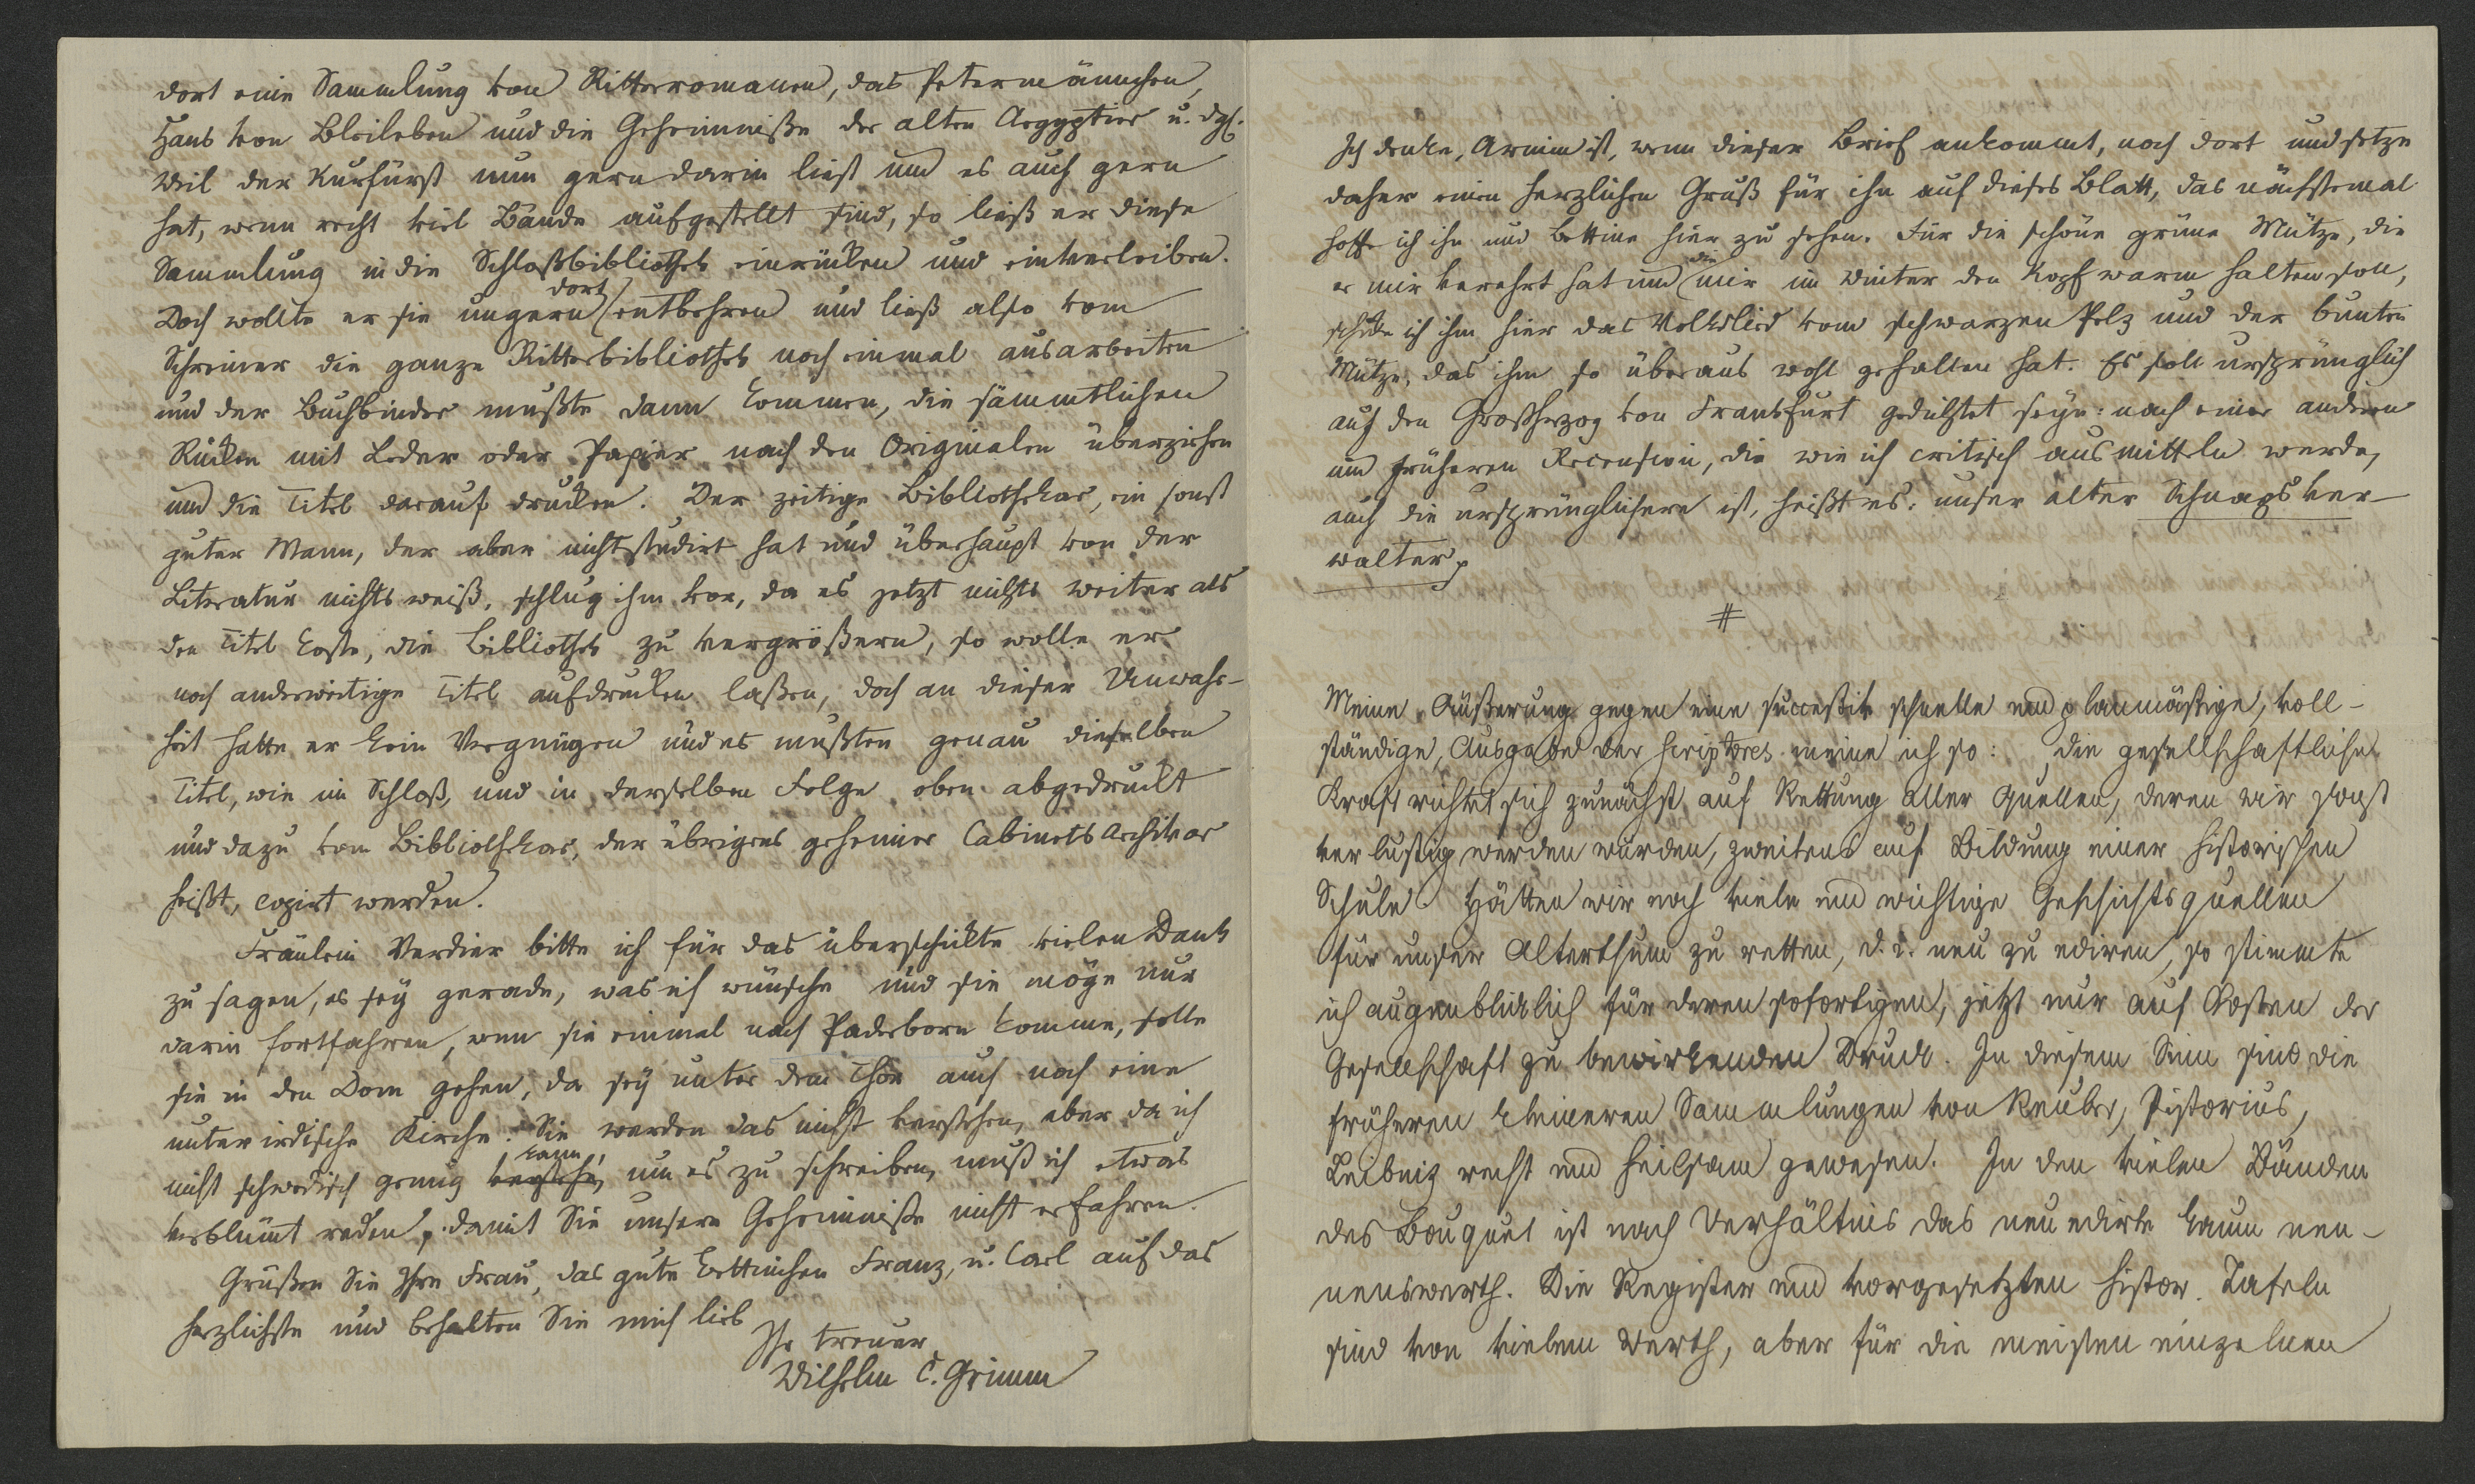 dort eine Sammlung von Ritterromanen, das Petermännchen,
Hans von Bleileben und die Geheimniße der alten Aegyptier u. dgl.
Weil der Kurfürst nun gern darin liest und es auch gern
hat, wenn recht viel Bände aufgestellt sind, so ließ er diese
Sammlung in die Schloßbibliothek einrücken und einverleiben.
Doch wollte er sie ungern dort entbehren und ließ also vom
Schreiner die ganze Ritterbibliothek noch einmal ausarbeiten
und der Buchbinder mußte dann kommen, die sämmtlichen
Rücken mit Leder oder Papier nach den Originalen überziehen
und die Titel darauf drucken. Der zeitige Bibliothekar, ein sonst
guter Mann, der aber nicht studirt hat und überhaupt von der
Literatur nichts weiß, schlug ihm vor, da es jetzt nichts weiter als
den Titel koste, die Bibliothek zu vergrößern, so wolle er
noch anderweitige Titel aufdrucken laßen, doch an dieser Unwahr-
heit hatte er kein Vergnügen und es mußten genau dieselben
Titel, wie im Schloß, und in derselben Folge oben abgedruckt
und dazu vom Bibliothekar, der übrigens geheimer Cabinets Archivar
heißt, copirt werden.
Fräulein Verdier bitte ich für das überschickte vielen Dank
zu sagen, es sey gerade, was ich wünsche und sie möge nur
darin fortfahren, wenn sie einmal nach Paderborn komme, solle
sie in den Dom gehen, da sey unter dem Chor auch noch eine
unterirdische Kirche. Sie werden das nicht verstehen, aber da ich
nicht schwedisch genug verstehe, kann, um es zu schreiben, muß ich etwas
verblümt reden, damit Sie unsere Geheimniße nicht erfahren.
Grüßen Sie Ihre Frau, das gute Bettinchen Franz, u. Carl auf das
herzlichste und behalten Sie mich lieb
Ihr treuer
Wilhelm C. Grimm
Ich denke, Arnim ist, wenn dieser Brief ankommt, noch dort und setze
daher einen herzlichen Gruß für ihn auf dieses Blatt, das nächstemal
hoffe ich ihn und Bettine hier zu sehen. Für die schöne grüne Mütze, die
er mir verehrt hat und die mir im Winter den Kopf warm halten soll,
schicke ich ihm hier das Volkslied vom schwarzen Pelz und der bunten
Mütze, das ihm so überaus wohl gefallen hat. Es soll ursprünglich
auf den Großherzog von Frankfurt gedichtet seyn: nach einer andern
und früheren Recension, die wie ich critisch ausmitteln werde,
auch die ursprünglichere ist, heißt es: unser alter Schnapsver-
walter p
#
Meine Äußerung gegen eine successiv schnelle und planmäßige, voll-
ständige, Ausgabe der scriptores meine ich so: die gesellschaftliche
Kraft richtet sich zunächst auf Rettung aller Quellen, deren wir sonst
verlustig werden würden, zweitens auf Bildung einer historischen
Schule. Hätten wir noch viele und wichtige Geschichtsquellen
für unser Alterthum zu retten, d. i. neu zu ediren, so stimmte
ich augenblicklich für deren sofortigen, jetzt nur auf Kosten der
Gesellschaft zu bewirkenden Druck. In diesem Sinn sind die
früheren kleineren Sammlungen von Reuber, Pistorius,
Leibniz recht und heilsam gewesen. In den vielen Bänden
des Bouquet ist nach Verhältnis das neu edirte kaum nen-
nenswerth. Die Register und vorgesetzten histor. Tafeln
sind von vielem Werth, aber für die meisten einzelnen